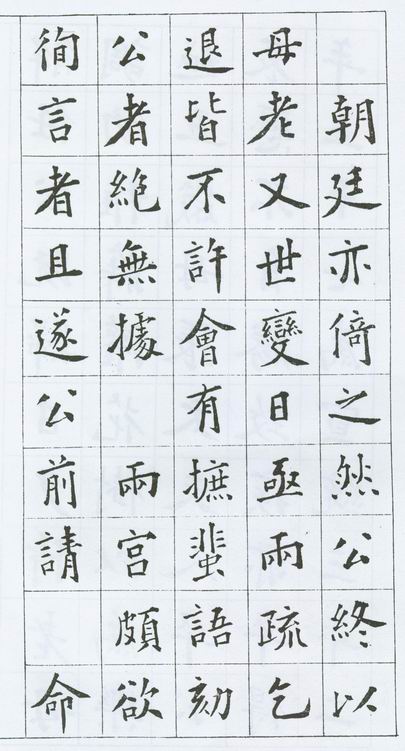 朝廷亦倚之然公終以
母老又世變日亟兩疏乞
退皆不許會有摭蜚語劾
公者絶無據兩宮頗欲
徇言者且遂公前請命